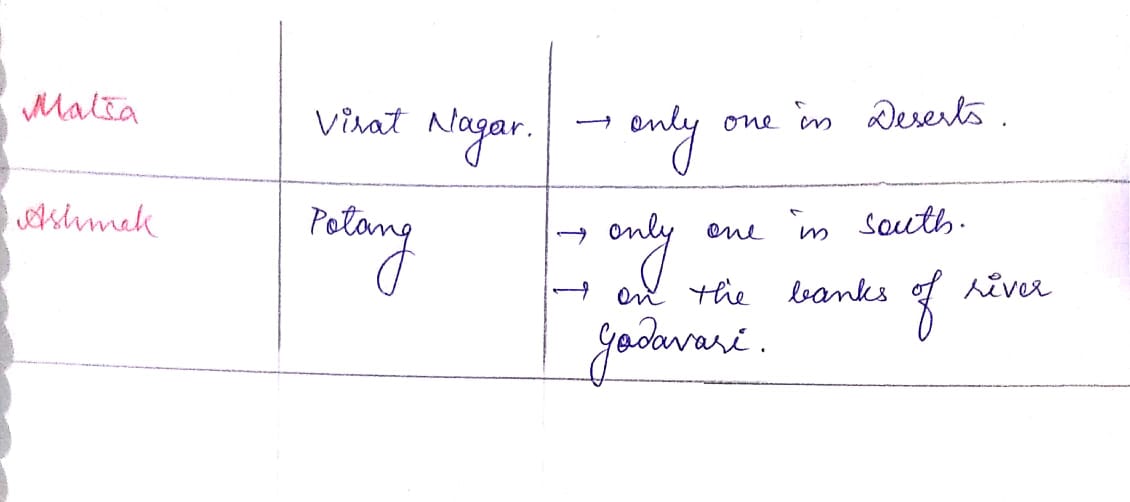 Matsa
Virat Nagar.
→ only one in Deserts.
Ashmak
Potang
→ only one in south.
→ on the banks of river
Godavari.